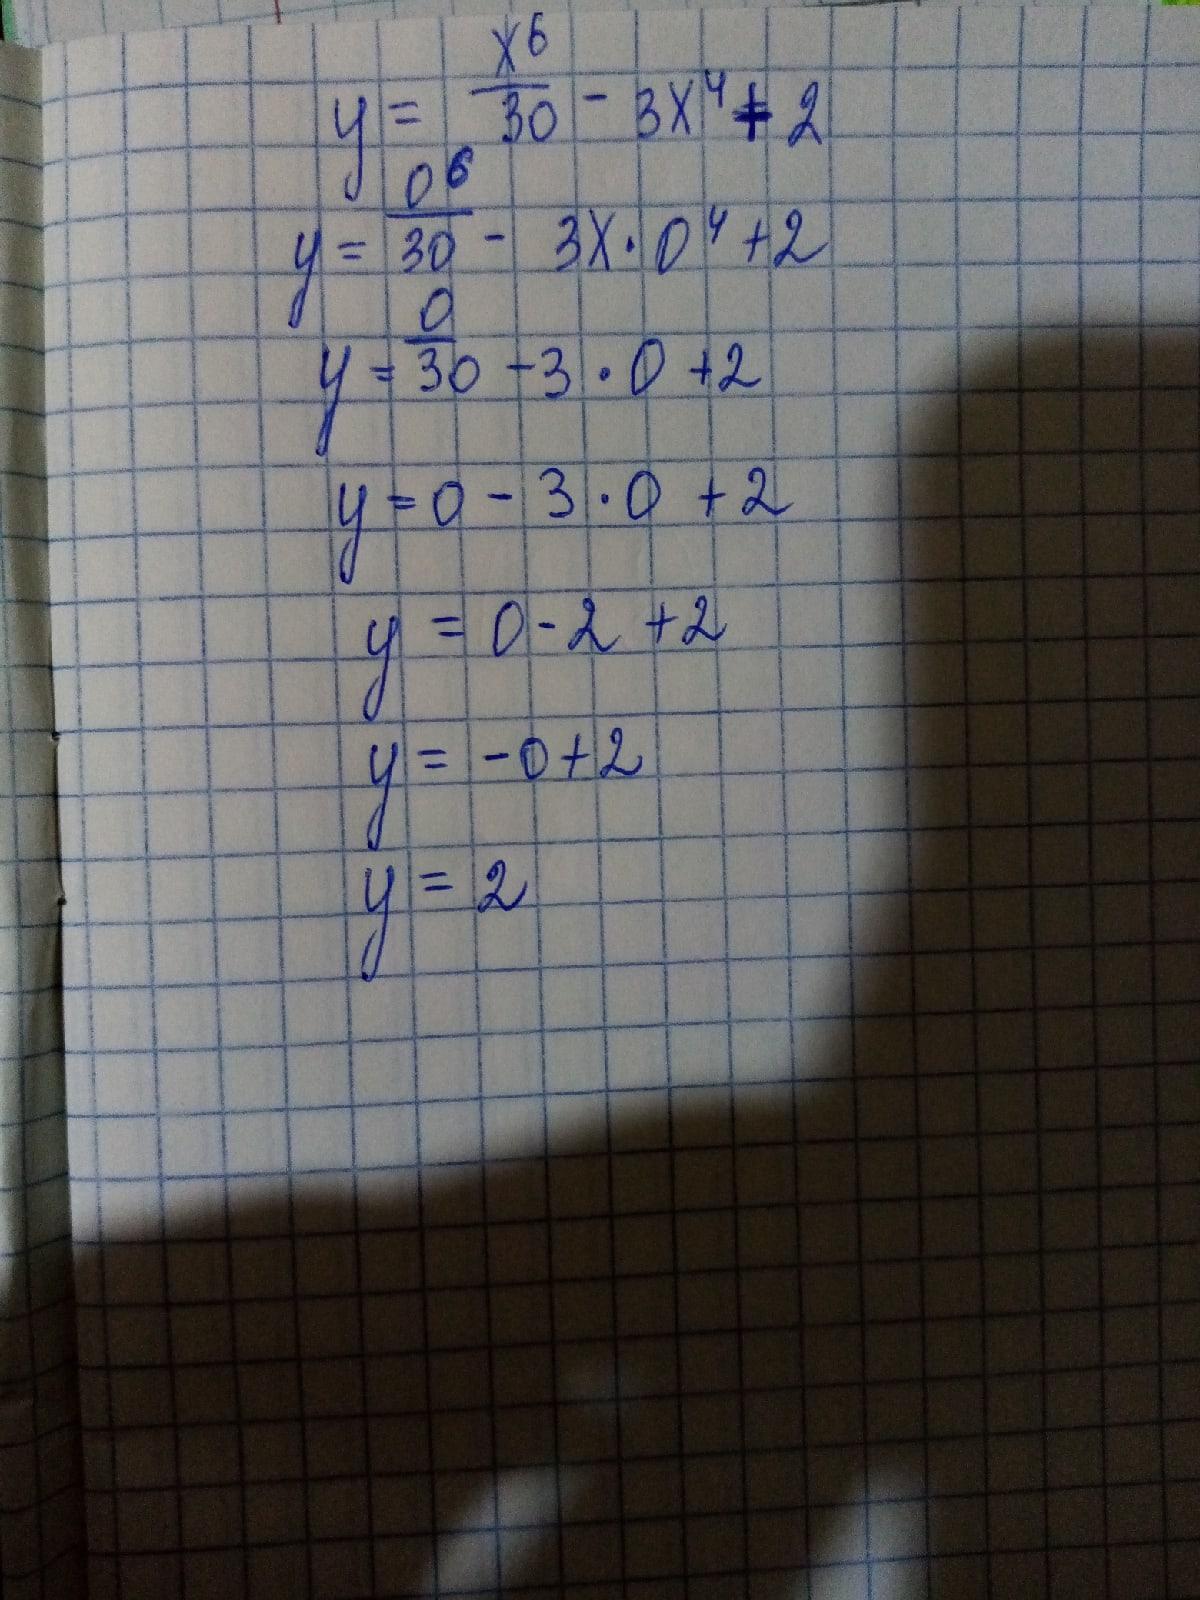 y = x⁶/30 - 3x⁴ + 2
y = 0⁶/30 - 3x · 0⁴ + 2
y = 0/30 - 3 · 0 + 2
y = 0 - 3 · 0 + 2
y = 0 - 2 + 2
y = -0 + 2
y = 2